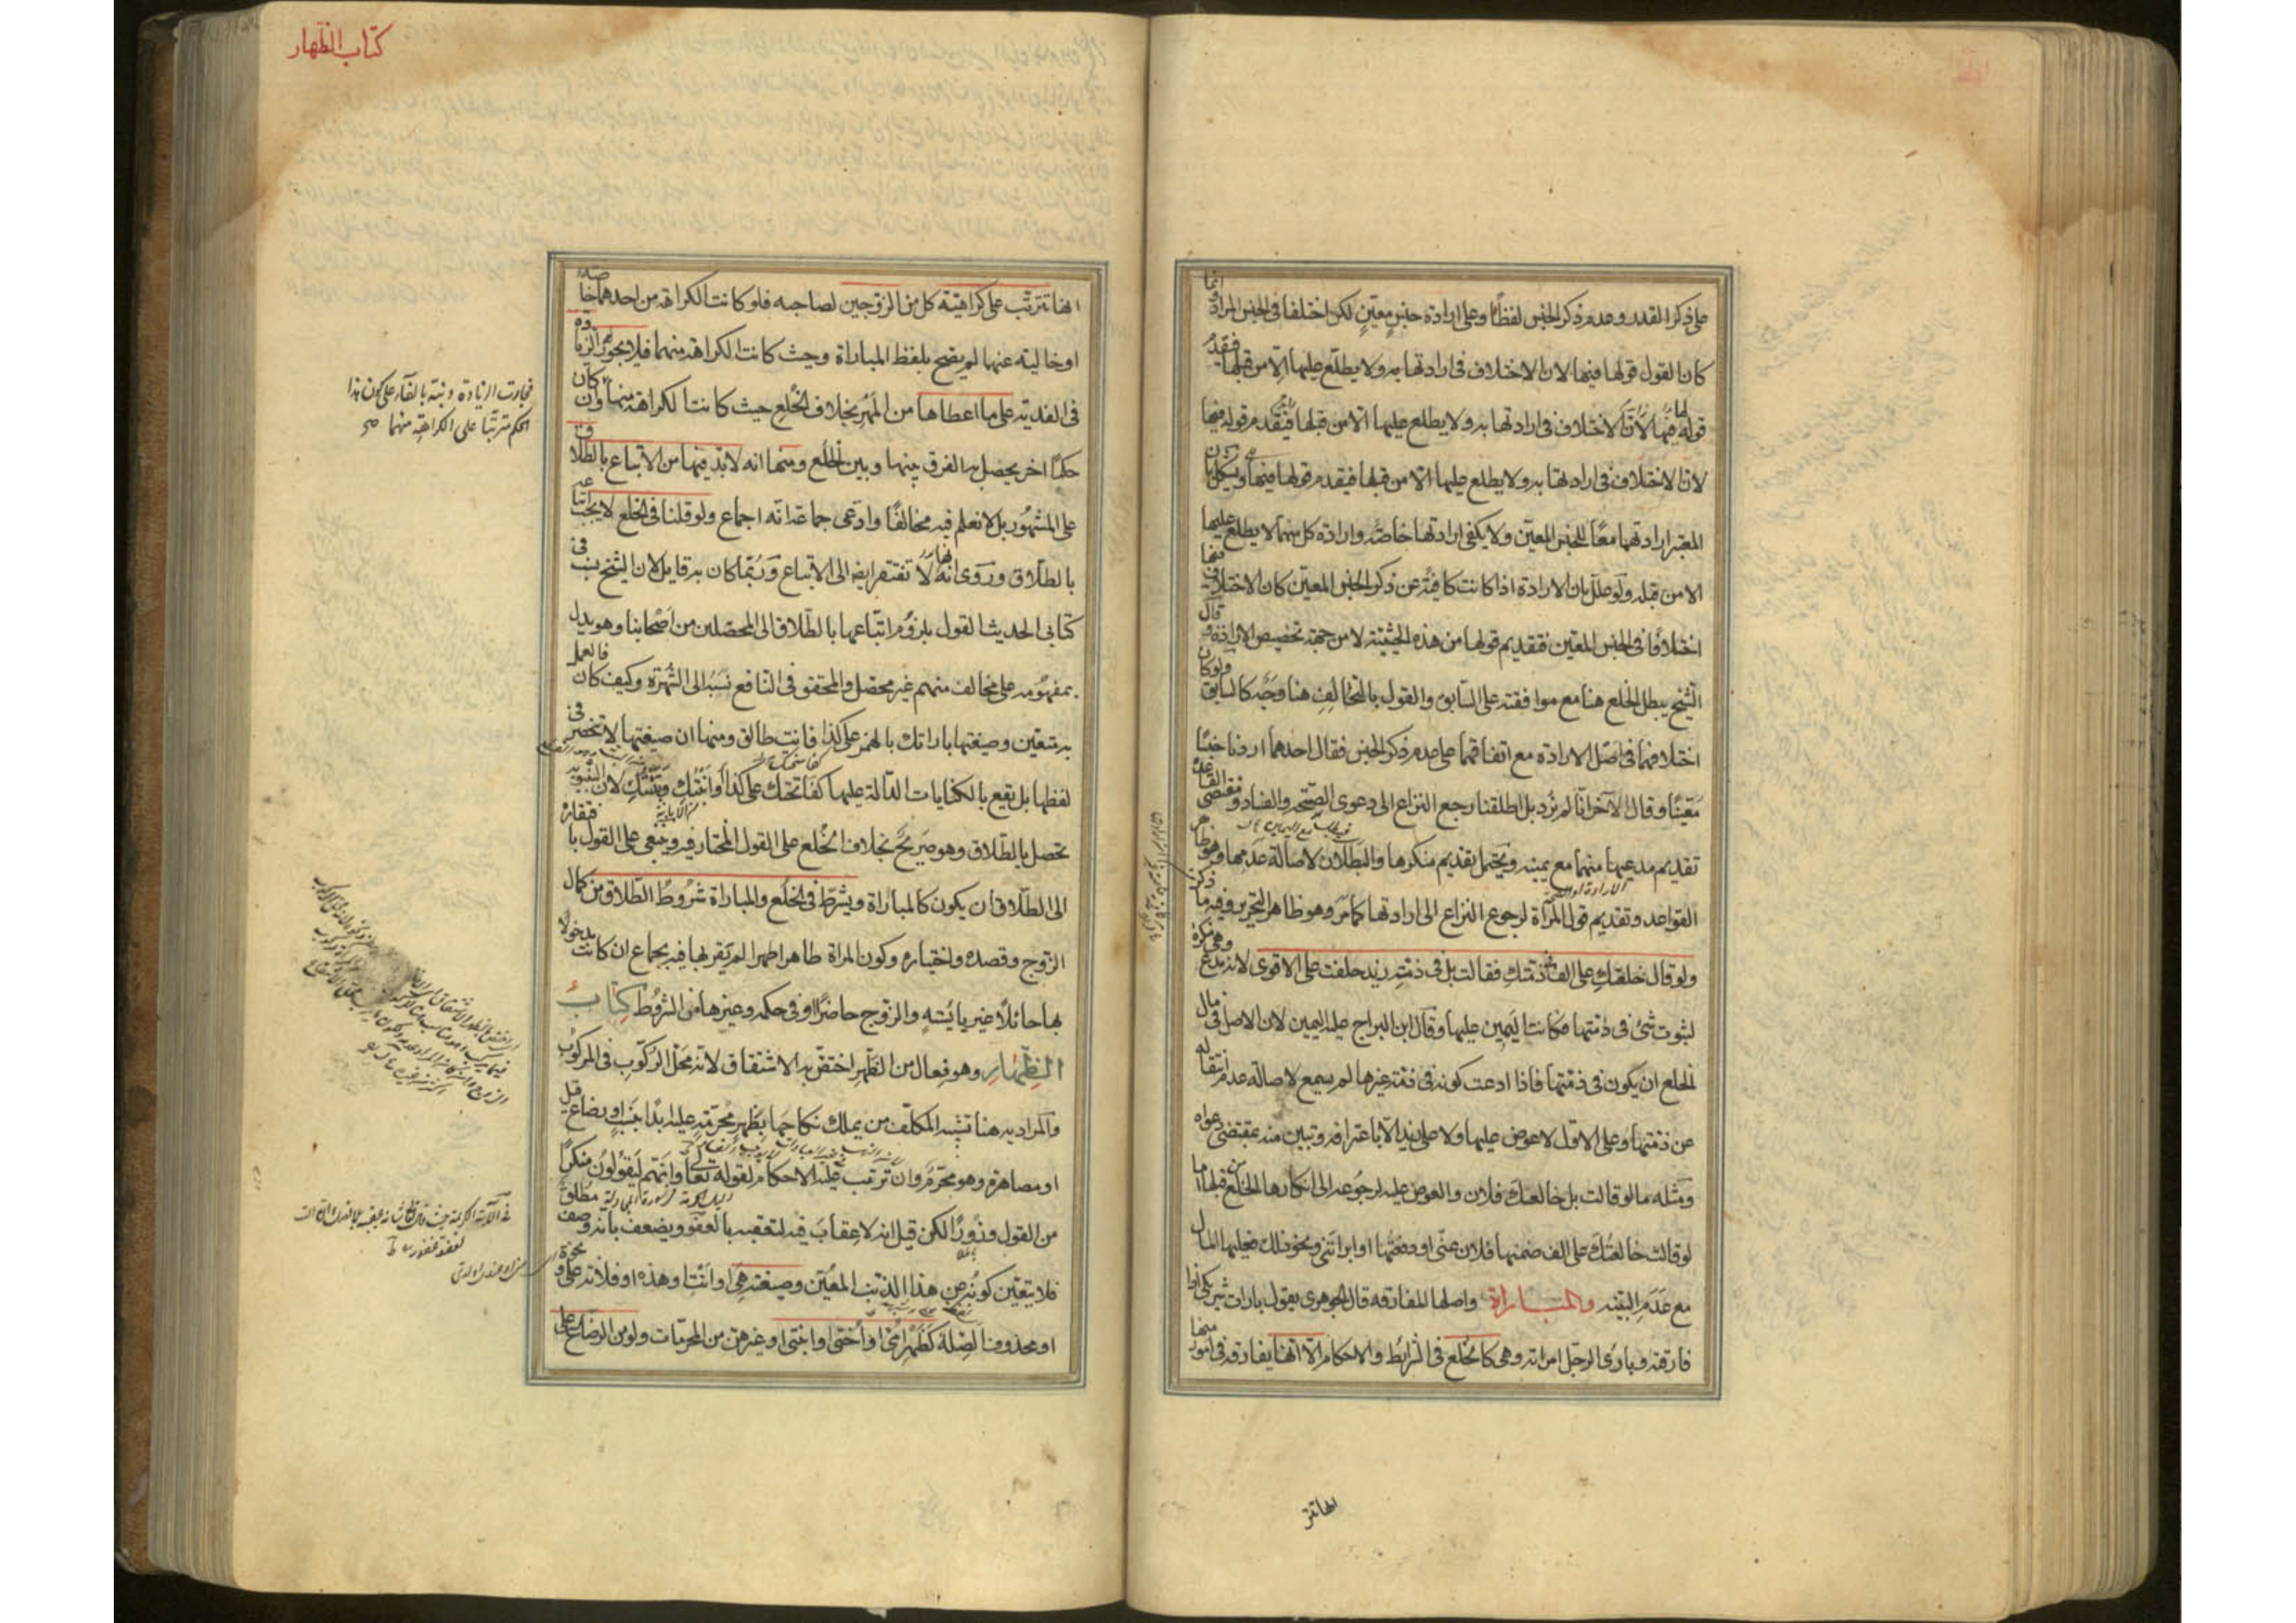 على ذكر القدر وعدم ذكر الجنس لفظًا وعلى ارادة جنس معين لكن اختلفا فى الجنس المراد وانما
كان القول قولها فيها لان الاختلاف فى ارادتها به ولا يطلع عليها الا من قبلها فيقدم
قولها فيها لان الاختلاف فى ارادتها به ولا يطلع عليها الا من قبلها فيقدم قوله فيها
لان الاختلاف فى ارادتها به ولا يطلع عليها الا من قبلها فيقدم قولها فيها ويشكل بان
المعتبر ارادتهما معًا للجنس المعين ولا يكفى ارادتها خاصة وارادة كل منهما لا يطلع عليها
الا من قبله ولو علل بان الارادة اذا كانت كافية عن ذكر الجنس المعين كان الاختلاف فيها
اختلافًا فى الجنس المعين فتقديم قولها من هذه الحيثية لا من جهة تخصيص الارادة وقال
الشيخ يبطل الخلع هنا مع موافقته على السابق والقول بالتحالف هنا وجه كالسابق ولو كان
اختلافهما فى اصل الارادة مع اتفاقهما على عدم ذكر الجنس فقال احدهما اردنا جنسًا
معينًا وقال الآخر انا لم نرد بل اطلقنا رجع النزاع الى دعوى الصحة والفساد ومقتضى القاعدة
تقديم مدعيها منهما مع يمينه ويحتمل تقديم منكرها والبطلان لاصالة عدمها وهو ظاهر
القواعد وتقديم قول المرأة لرجوع النزاع الى ارادتها كما مر وهو ظاهر التحرير وفيه ما ذكر
ولو قال خلعتك على الف فى ذمتك فقالت بل فى ذمة زيد حلفت على الاقوى لانه مدع وهى منكرة
لثبوت شئ فى ذمتها فكانت اليمين عليها وقال ابن البراج عليه اليمين لان الاصل فى مال
الخلع ان يكون فى ذمتها فاذا ادعت كونه فى ذمة غيرها لم يسمع لاصالة عدم انتقاله
عن ذمتها وعلى الاول لا عوض عليها ولا على زيد الا باعترافه وتبين منه بمقتضى دعواه
ومثله ما لو قالت بل خالعك فلان والعوض عليه لرجوعه الى انكارها الخلع من قبلها اما
لو قالت خالعتك على الف ضمنها فلان عنى او دفعتها او ابراتنى ونحو ذلك فعليها المال
مع عدم البينه والمباراة واصلها المفارقه قال الجوهرى يقول بارات شريكى اذا
فارقته وبارى الرجل امراته وهى كالخلع فى الشرائط والاحكام الا انها يفارقه فى امور منها
انها تتر
كتاب الظهار
انها تترتب على كراهية كل من الزوجين لصاحبه فلو كانت الكراهة من احدهما خاصة
او خالية عنهما لم يصح بلفظ المباراة وحيث كانت الكراهة منهما فلا يجوز الزيادة
فى الفدية على ما اعطاها من المهر بخلاف الخلع حيث كانت الكراهة منها وان كان
حكمًا اخر يحصل به الفرق بينها وبين الخلع ومنها انه لا بد فيها من الاتباع بالطلاق
على المشهور بل لا نعلم فيه مخالفًا وادعى جماعة انه اجماع ولو قلنا فى الخلع لا يجب اتباعه
بالطلاق وروى انها لا تفتقر ايضا الى الاتباع وربما كان به قايل لان الشيخ نسب فى
كتابى الحديث القول بلزوم اتباعها بالطلاق الى المحصلين من اصحابنا وهو يدل
بمفهومه على مخالف منهم غير محصل والمحقق فى النافع نسبه الى الشهرة وكيف كان فالعمل
به متعين وصيغتها باراتك بالهمز على كذا فانت طالق ومنها ان صيغتها لا تنحصر فى
لفظها بل تقع بالكنايات الدالة عليها كفاتحتك على كذا او ابنتك وبتتك لان البينونة
تحصل بالطلاق وهو صريح بخلاف الخلع على القول المختار فيه وينبغى على القول بافتقاره
الى الطلاق ان يكون كالمباراة ويشترط فى الخلع والمباراة شروط الطلاق من كمال
الزوج وقصده واختياره وكون المراة طاهرا طهرا لم يقربها فيه بجماع ان كانت مدخولا
بها حائلًا غير يائسة والزوج حاضرًا او فى حكمه وغيرها من الشروط كتاب
الظهار وهو فعال من الظهر اختص به الاشتقاق لانه محل الركوب فى المركوب
والمراد به هنا تشبيه المكلف من يملك نكاحها بظهر محرمة عليه ابدًا بنسب او رضاع قيل
او مصاهرة وهو محرم وان ترتب عليه الاحكام لقوله تعالى وانهم ليقولون منكرًا
من القول وزورًا لكن قيل انه لا عقاب فيه لتعقبه بالعفو ويضعف بانه وصف مطلق
فلا يتعين كونه عن هذا الذنب المعين وصيغته هى او انت او هذه او فلانة على ونحوه
او محذوف الصلة كظهر امى او اختى او ابنتى او غيرهن من المحرمات ولو من الرضاع على
فجازت الزيادة ونبه بالفاء على كون هذا
الحكم مترتبًا على الكراهة منهما صح